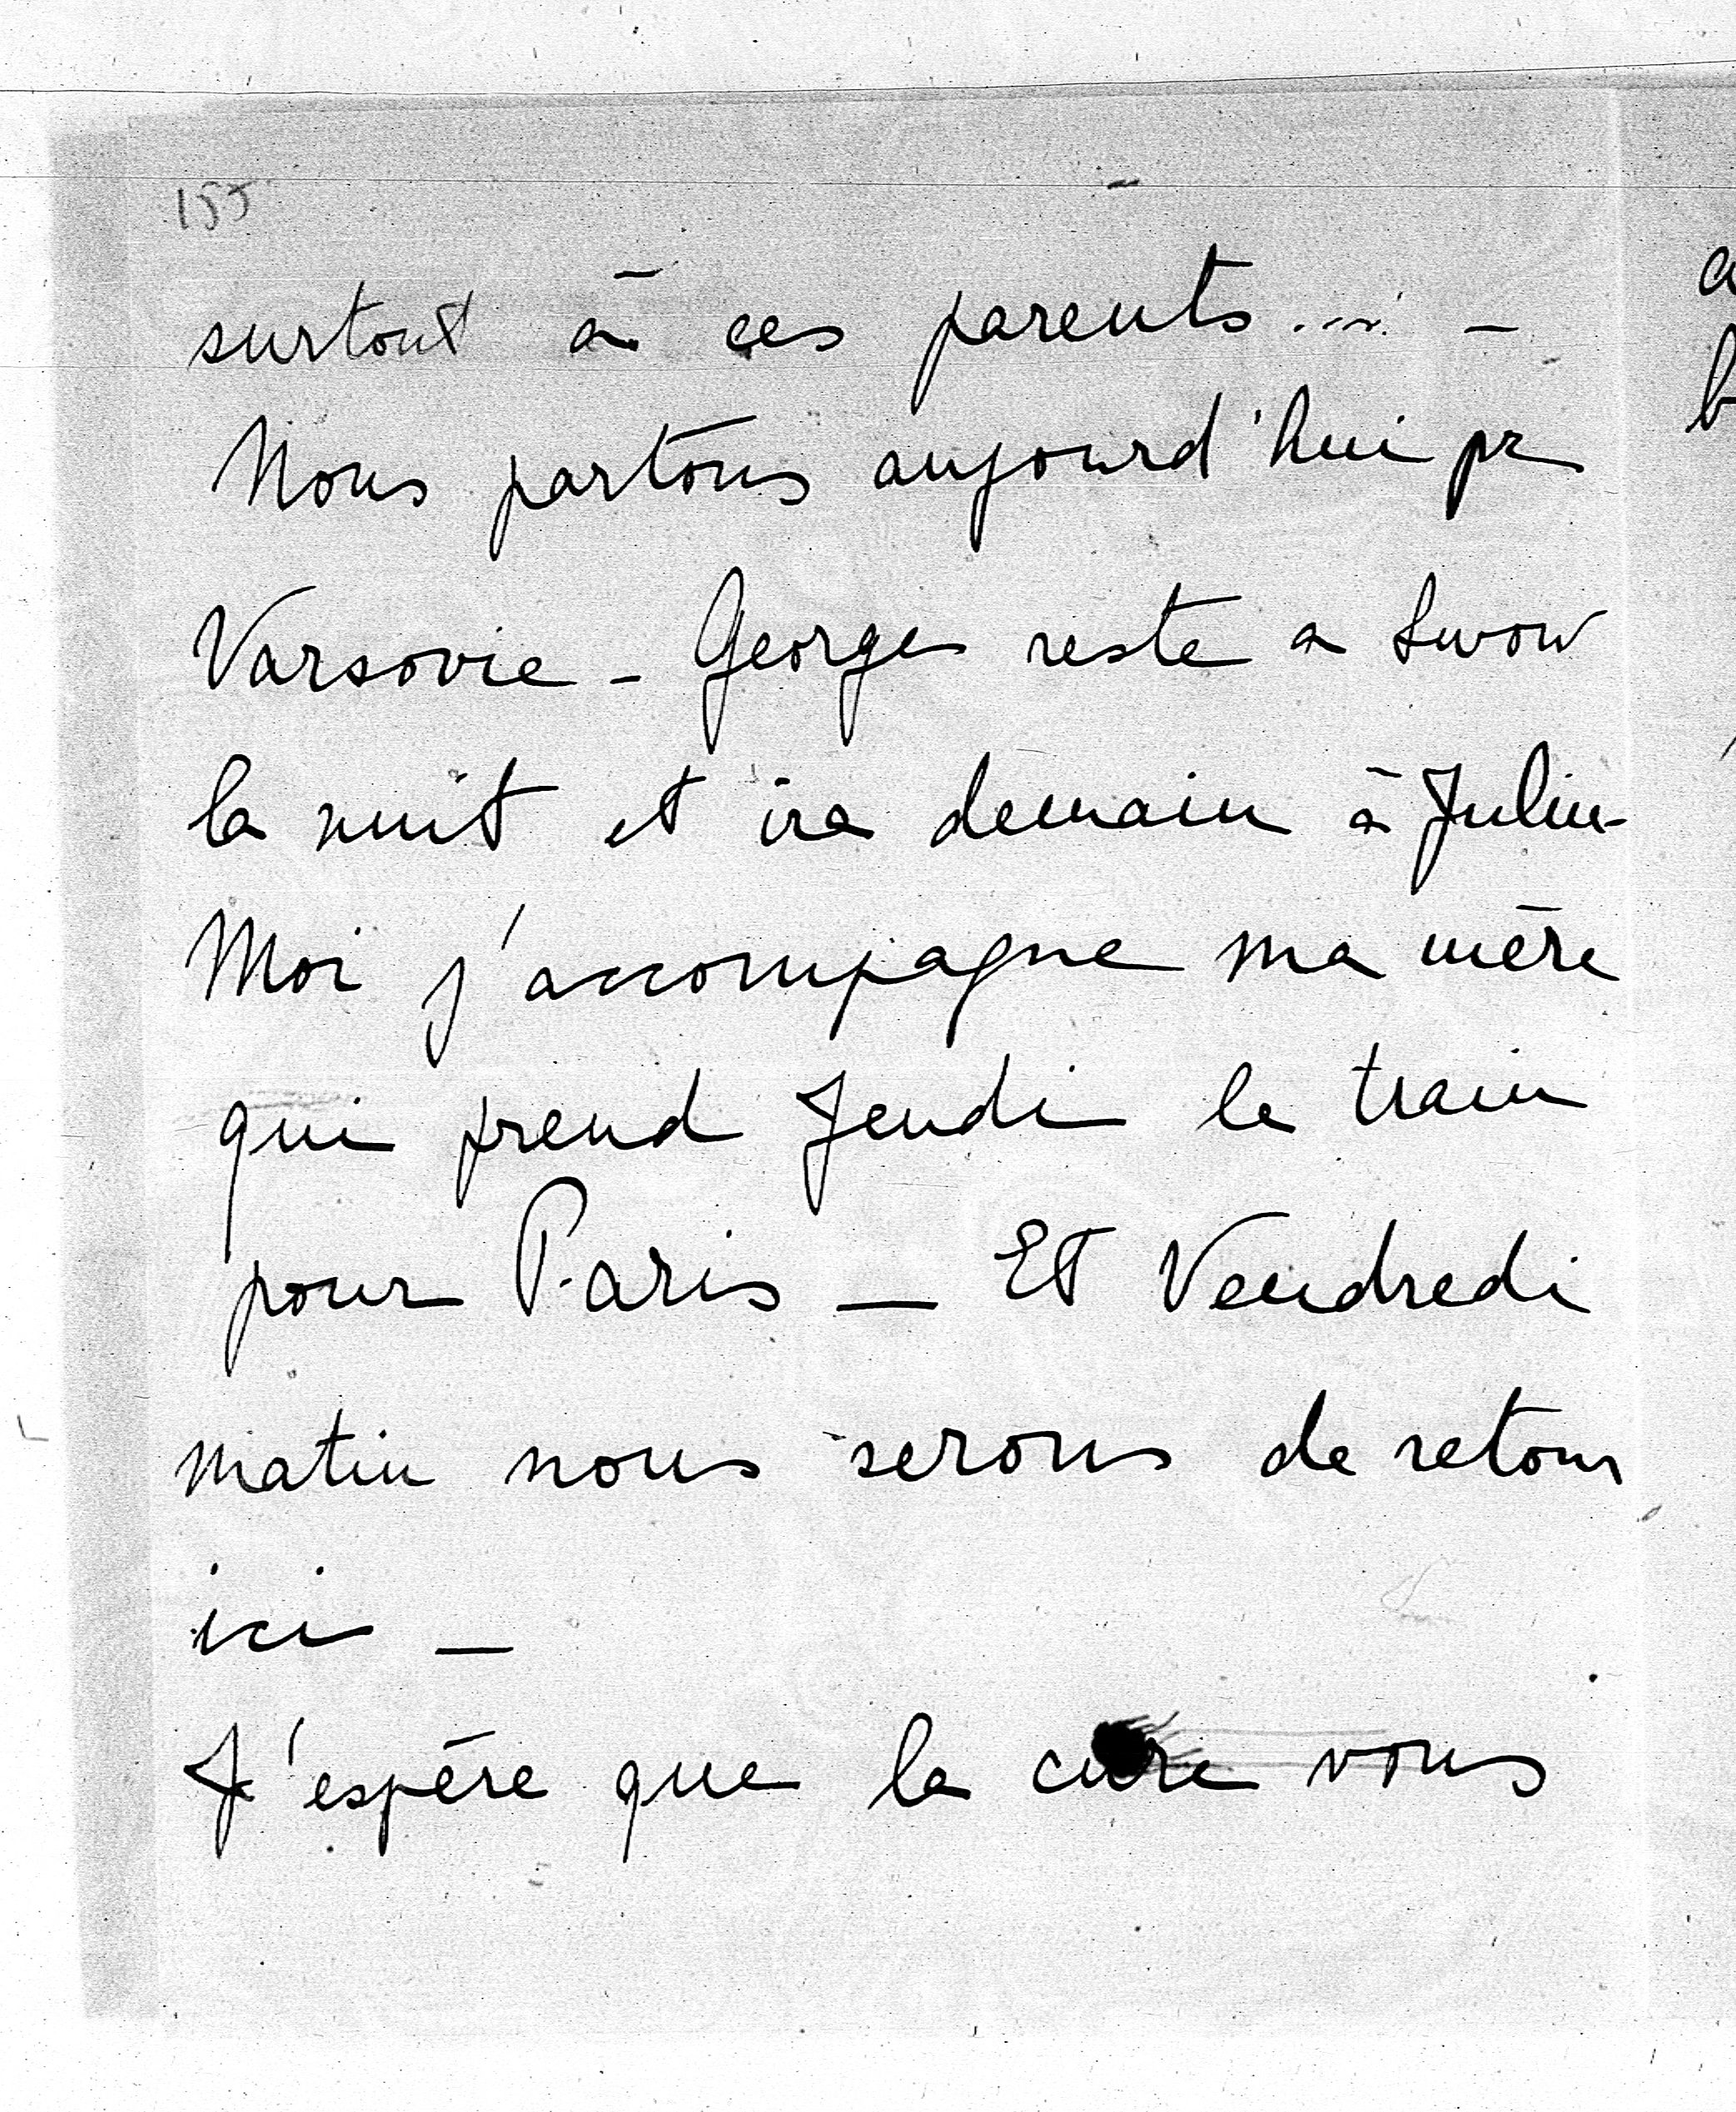 155
surtout à ces parents..... –
Nous partons aujourd'hui pr
Varsovie – Georges reste a Lwow
la nuit et ira demain à Julin –
Moi j'accompagne ma mère
qui prend Jeudi le train
pour Paris — Et Vendredi
matin nous serons de retour
ici —
J'espère que la cure vous